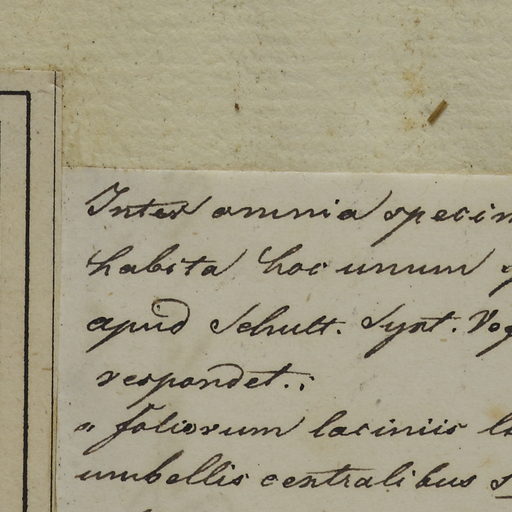 Inter omnia specim
habita hoc unum
apud Schult. Syst. Veg
respondet.:
„ foliorum laciniis
umbellis centralibus